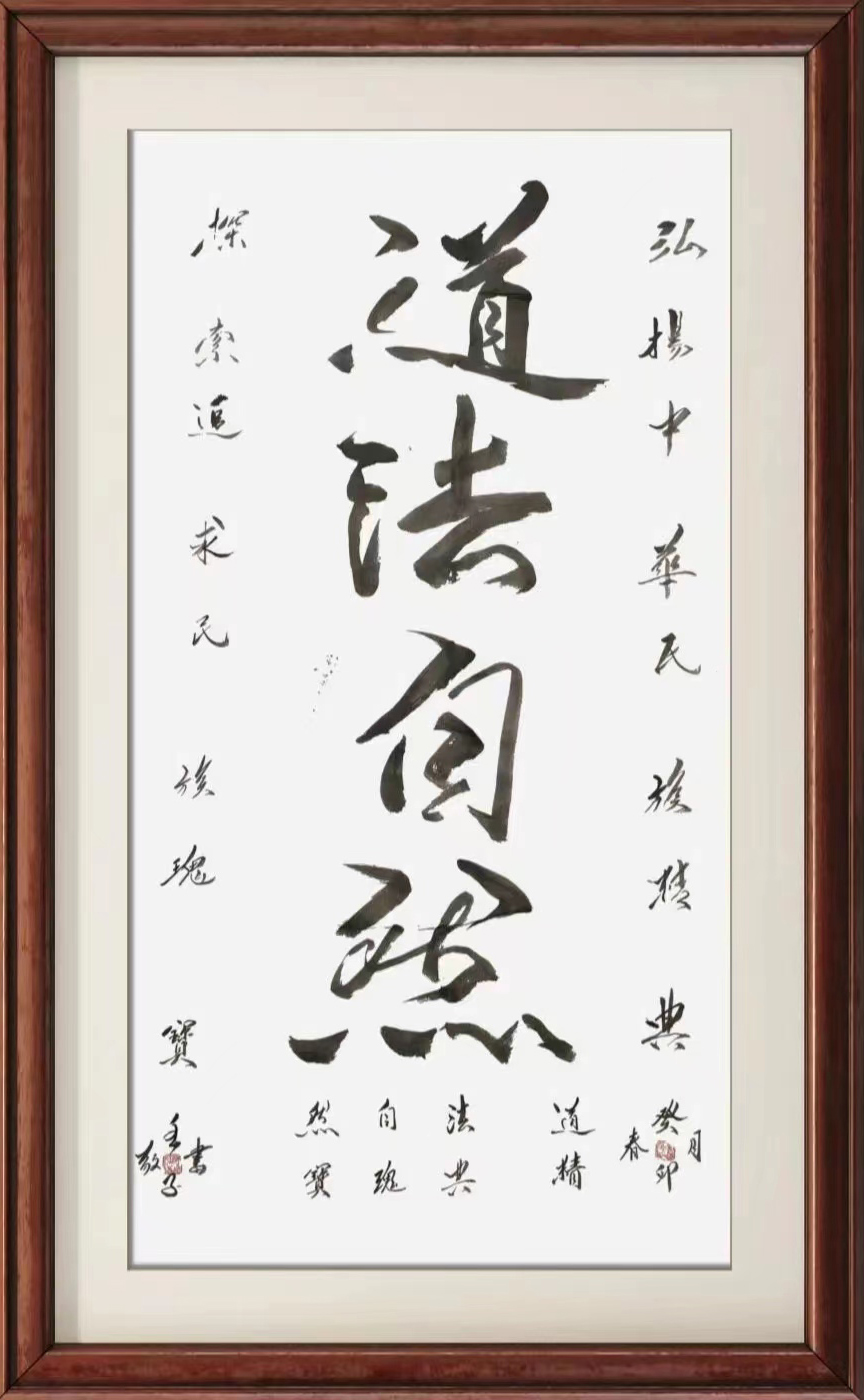 弘揚中華民族精典
癸卯
春月
道法自然
道法自然
精典瑰寶
探索追求民族瑰寶
敬書